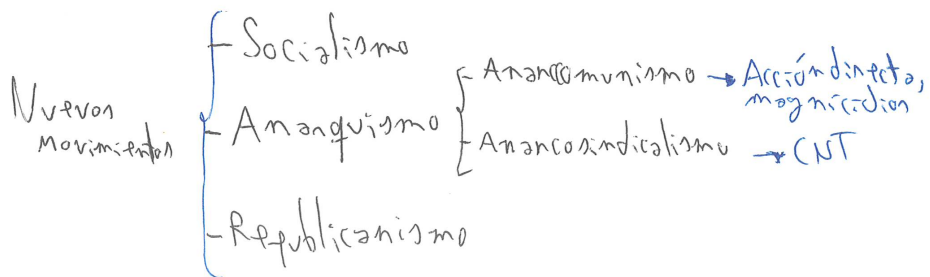 Nuevos
movimientos
- Socialismo
- Anarquismo
- Anarcomunismo → Acción directa,
magnicidios
- Anarcosindicalismo → CNT
- Republicanismo